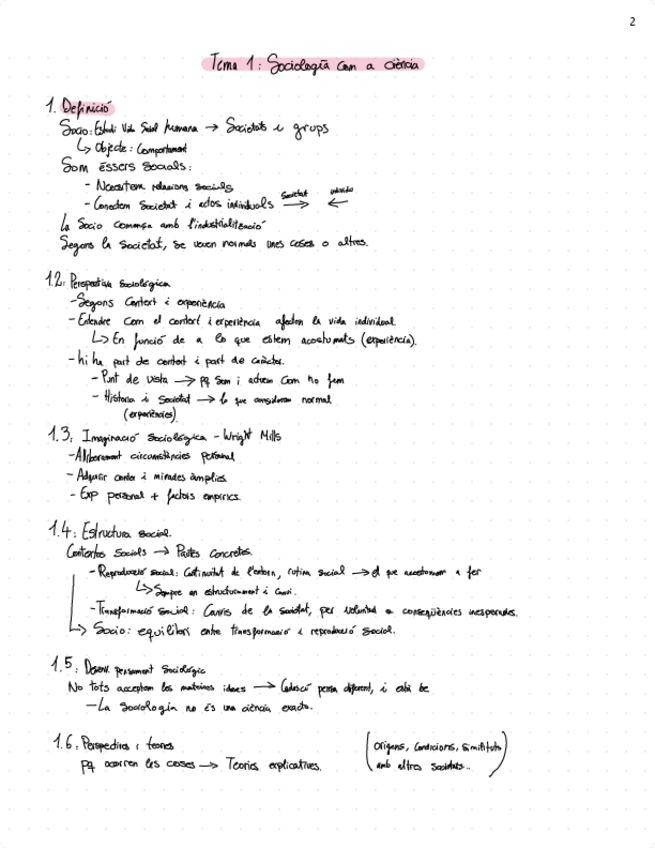 2
Tema 1: Sociologia com a ciència
1. Definició
Socio: Estudi Vida Social humana → Societats i grups
↳ Objecte: Comportament
Som éssers socials:
- Necessitem relacions socials
- Coneixem Societat i actes individuals Societat → individu ←
la Socio comença amb l'industrialització
Segons la Societat, se veuen normals unes coses o altres.
1.2: Perspectiva Sociológica
- Segons Context i experiència
- Entendre com el context i experiència afecten la vida individual.
↳ En funció de a lo que estem acostumats (experiència).
- hi ha part de context i part de caràcter.
- Punt de vista → pq som i actuem com ho fem
- Història i Societat → lo que considerem normal
(experiències)
1.3: Imaginació Sociológica - Wright Mills
- Alliberament circumstàncies personal
- Adquirir i mirades àmplies
- Exp personal + factors empírics.
1.4: Estructura social.
Contextos Socials → Pautes Concretes.
- Reproducció social: Continuitat de l'entorn, rutina social → el que acostumem a fer
↳ Sempre en estructurament i Canvi.
- Transformació Social: Canvis de la societat, per voluntad o conseqüències inesperades.
↳ Socio: equilibri entre transformació i reproducció social.
1.5: Desenv. pensament Sociològic
No tots accepten les mateixes idees → Cadascú pensa diferent, i està be
- La Sociología no és una ciència exacta.
1.6: Perspectives i teories
pq ocorren les coses → Teories explicatives.
(Origens, Condicions, Similituds
amb altres Societats..)